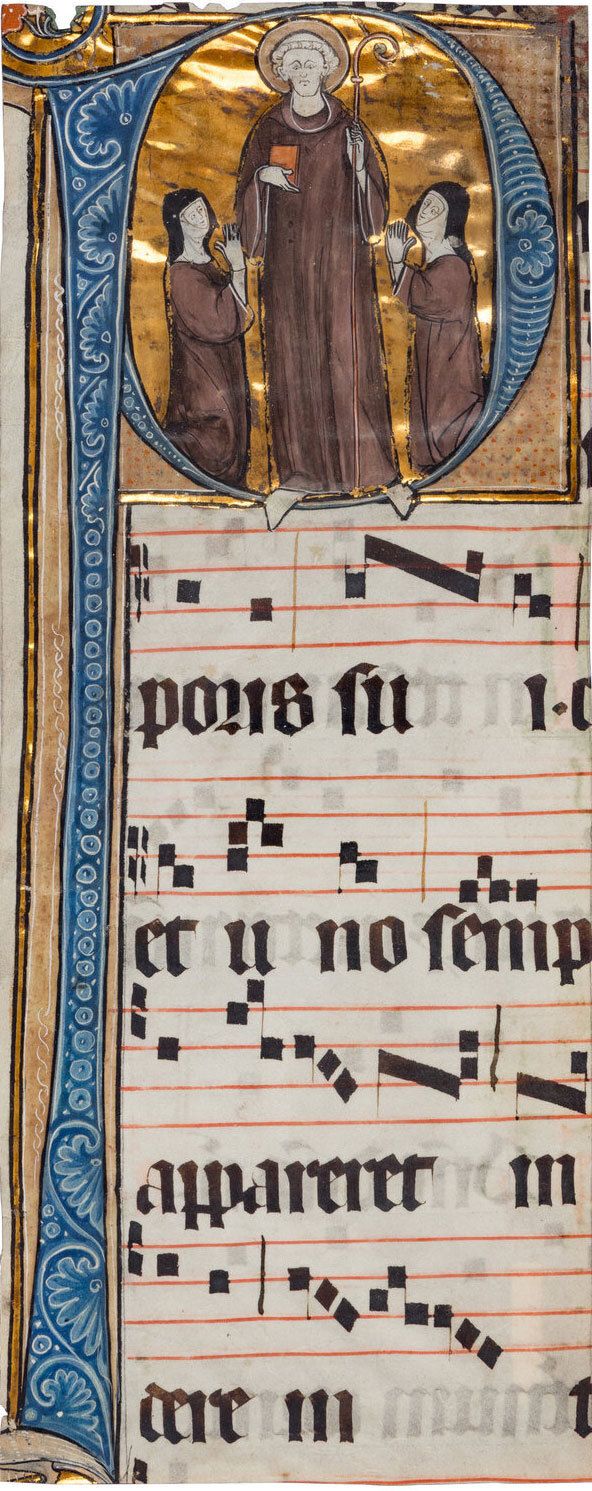 poris su i·c
et u no semp
appareret in
cere in t